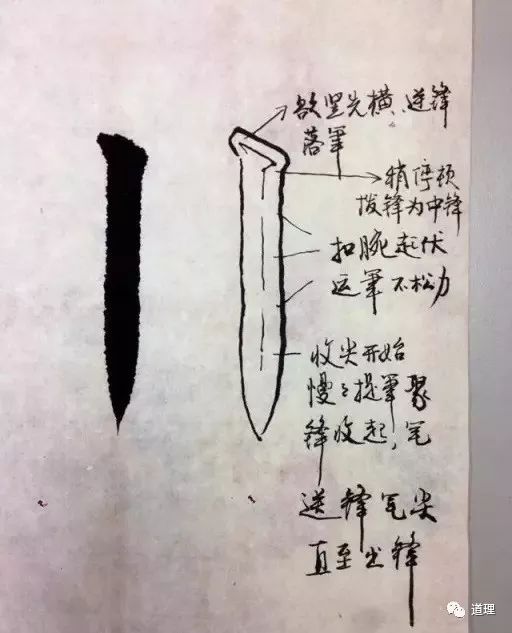 欲竖先横、逆锋
落笔
稍停顿
拨锋为中锋
扣腕起伏
运笔不松力
收尖开始
慢慢提笔聚
锋收起,笔
送锋笔尖
直至出锋
道理